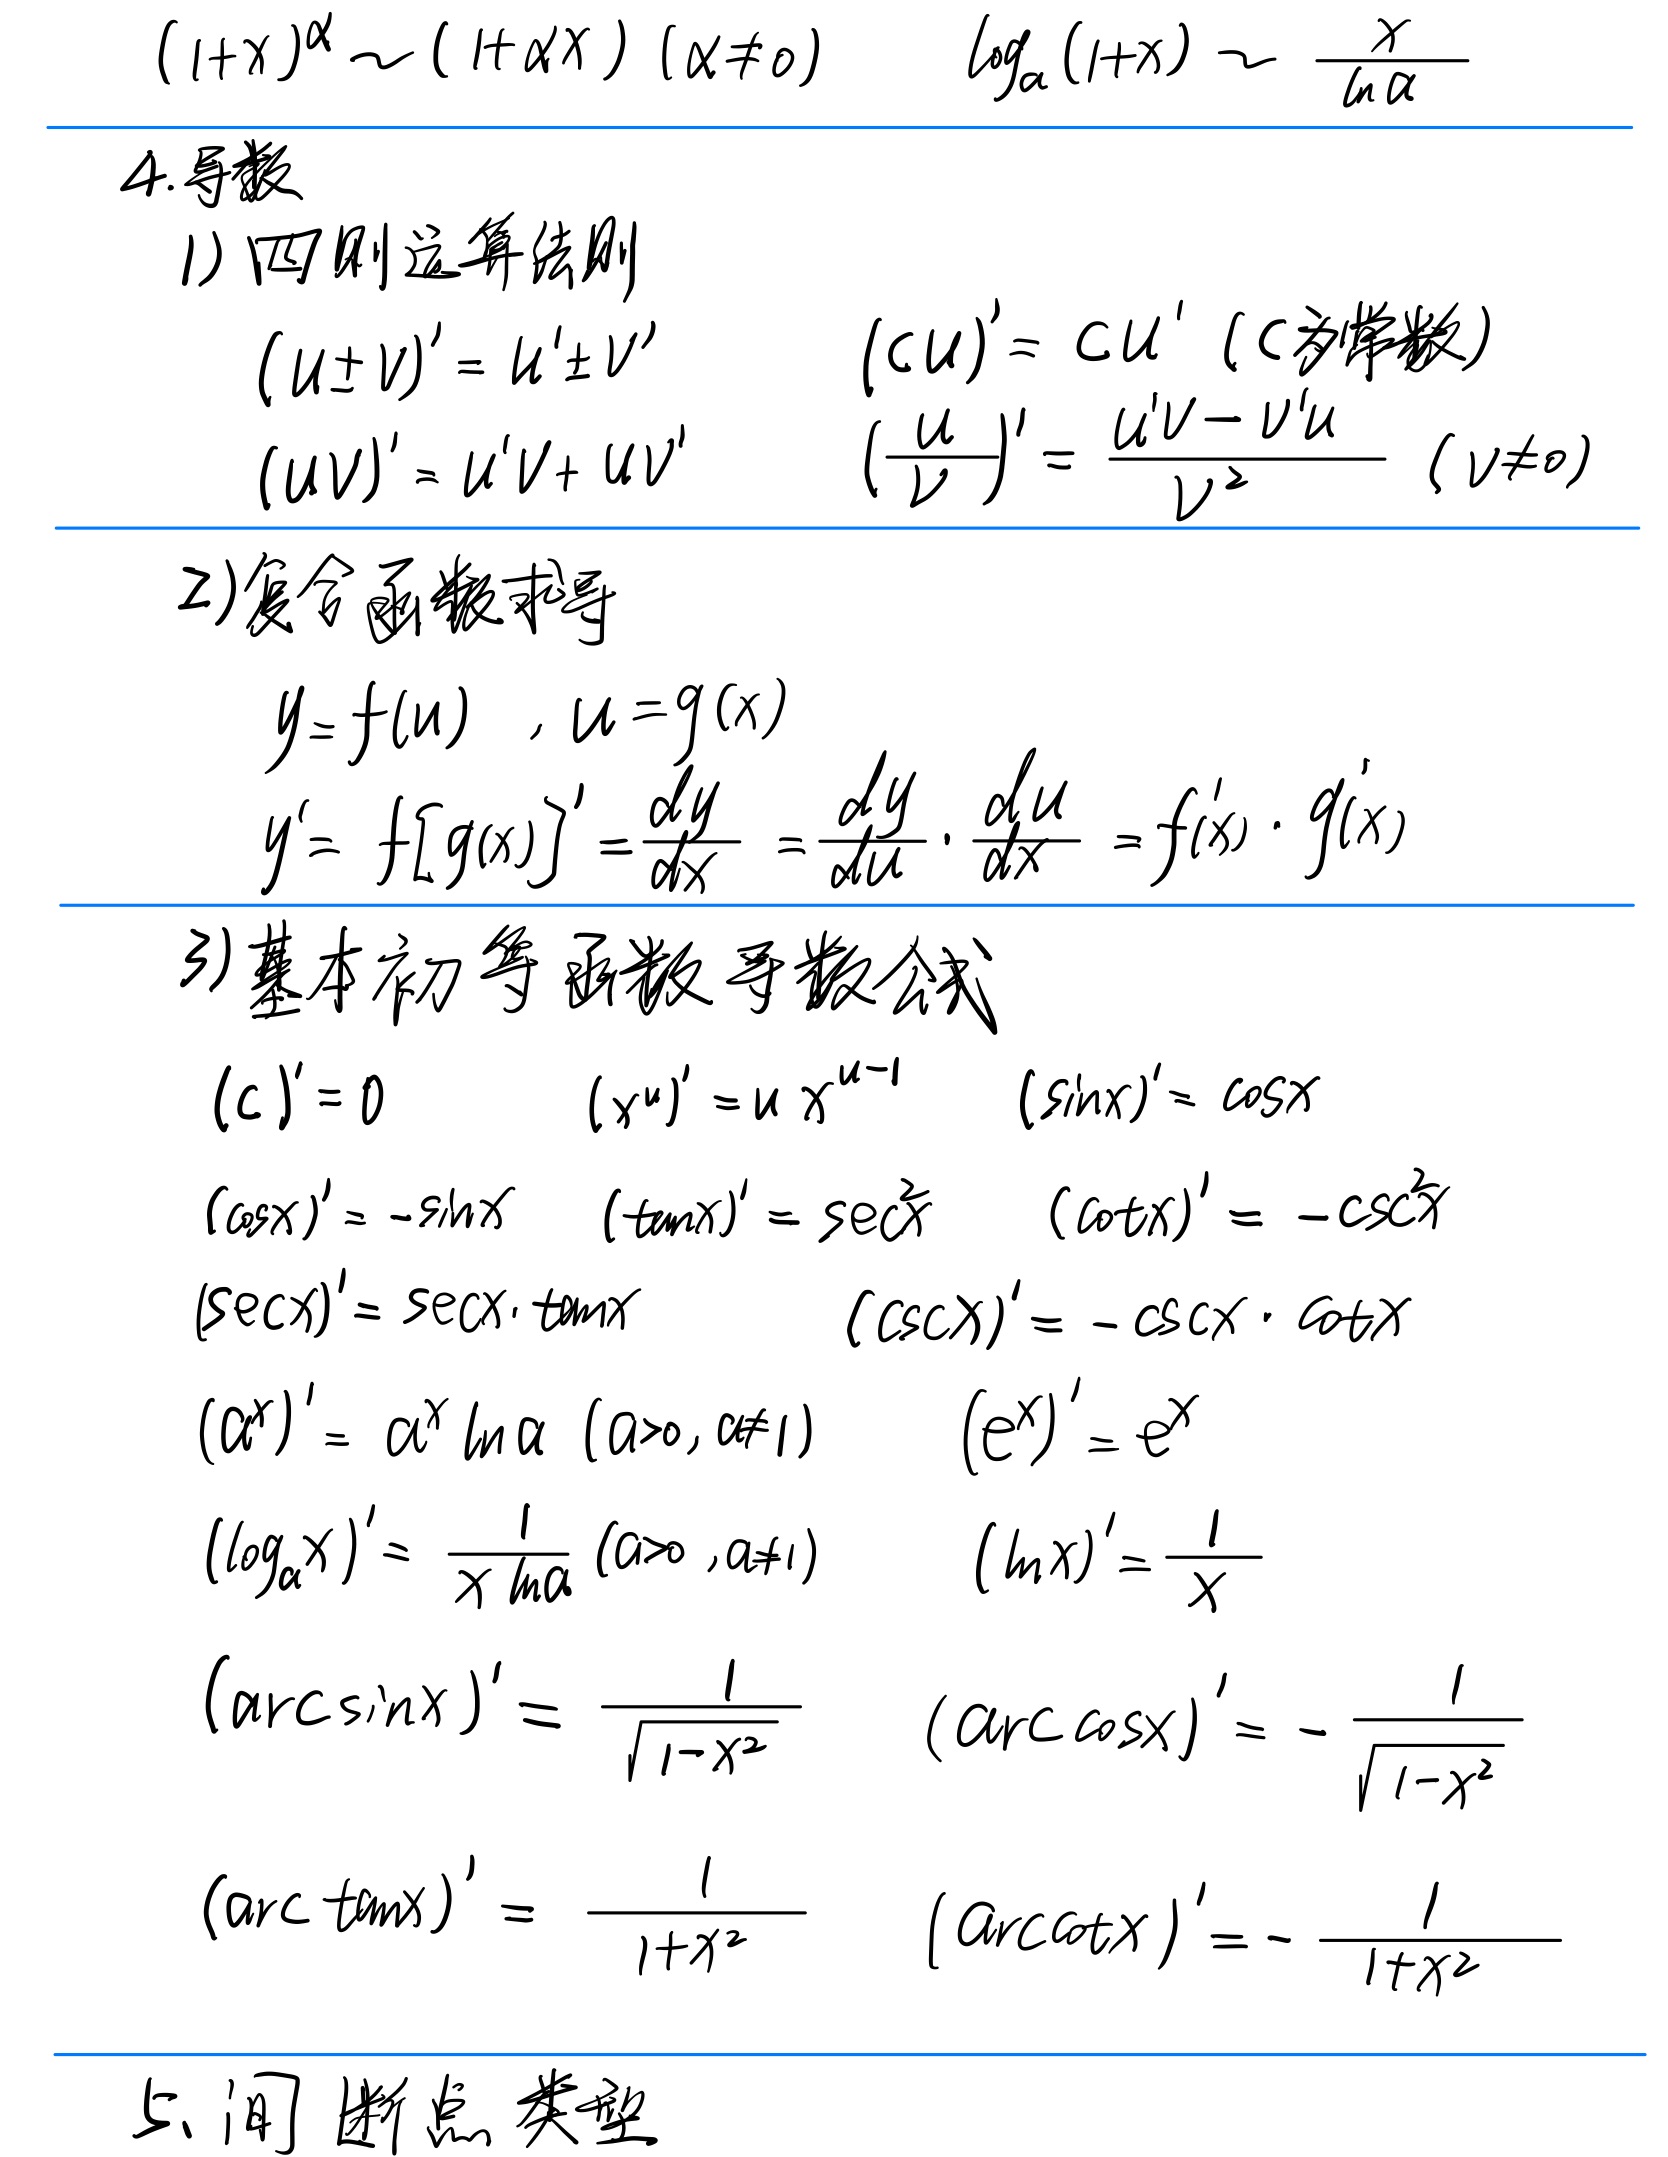 (1+x)^α ~ (1+αx) (α≠0) log_a(1+x) ~ x/ln a
4.导数
1)四则运算法则
(u±v)' = u'±v' (cu)' = cu' (c为常数)
(uv)' = u'v+uv' (u/v)' = (u'v-v'u)/v² (v≠0)
2)复合函数求导
y=f(u) , u=g(x)
y' = f[g(x)]' = dy/dx = dy/du · du/dx = f'(x) · g'(x)
3)基本初等函数导数公式
(c)' = 0 (x^u)' = u x^(u-1) (sinx)' = cosx
(cosx)' = -sinx (tanx)' = sec²x (cotx)' = -csc²x
(secx)' = secx·tanx (cscx)' = -cscx·cotx
(a^x)' = a^x ln a (a>0, a≠1) (e^x)' = e^x
(log_a x)' = 1/(x ln a) (a>0, a≠1) (lnx)' = 1/x
(arcsinx)' = 1/√(1-x²) (arccosx)' = -1/√(1-x²)
(arctanx)' = 1/(1+x²) (arccotx)' = -1/(1+x²)
5、间断点类型